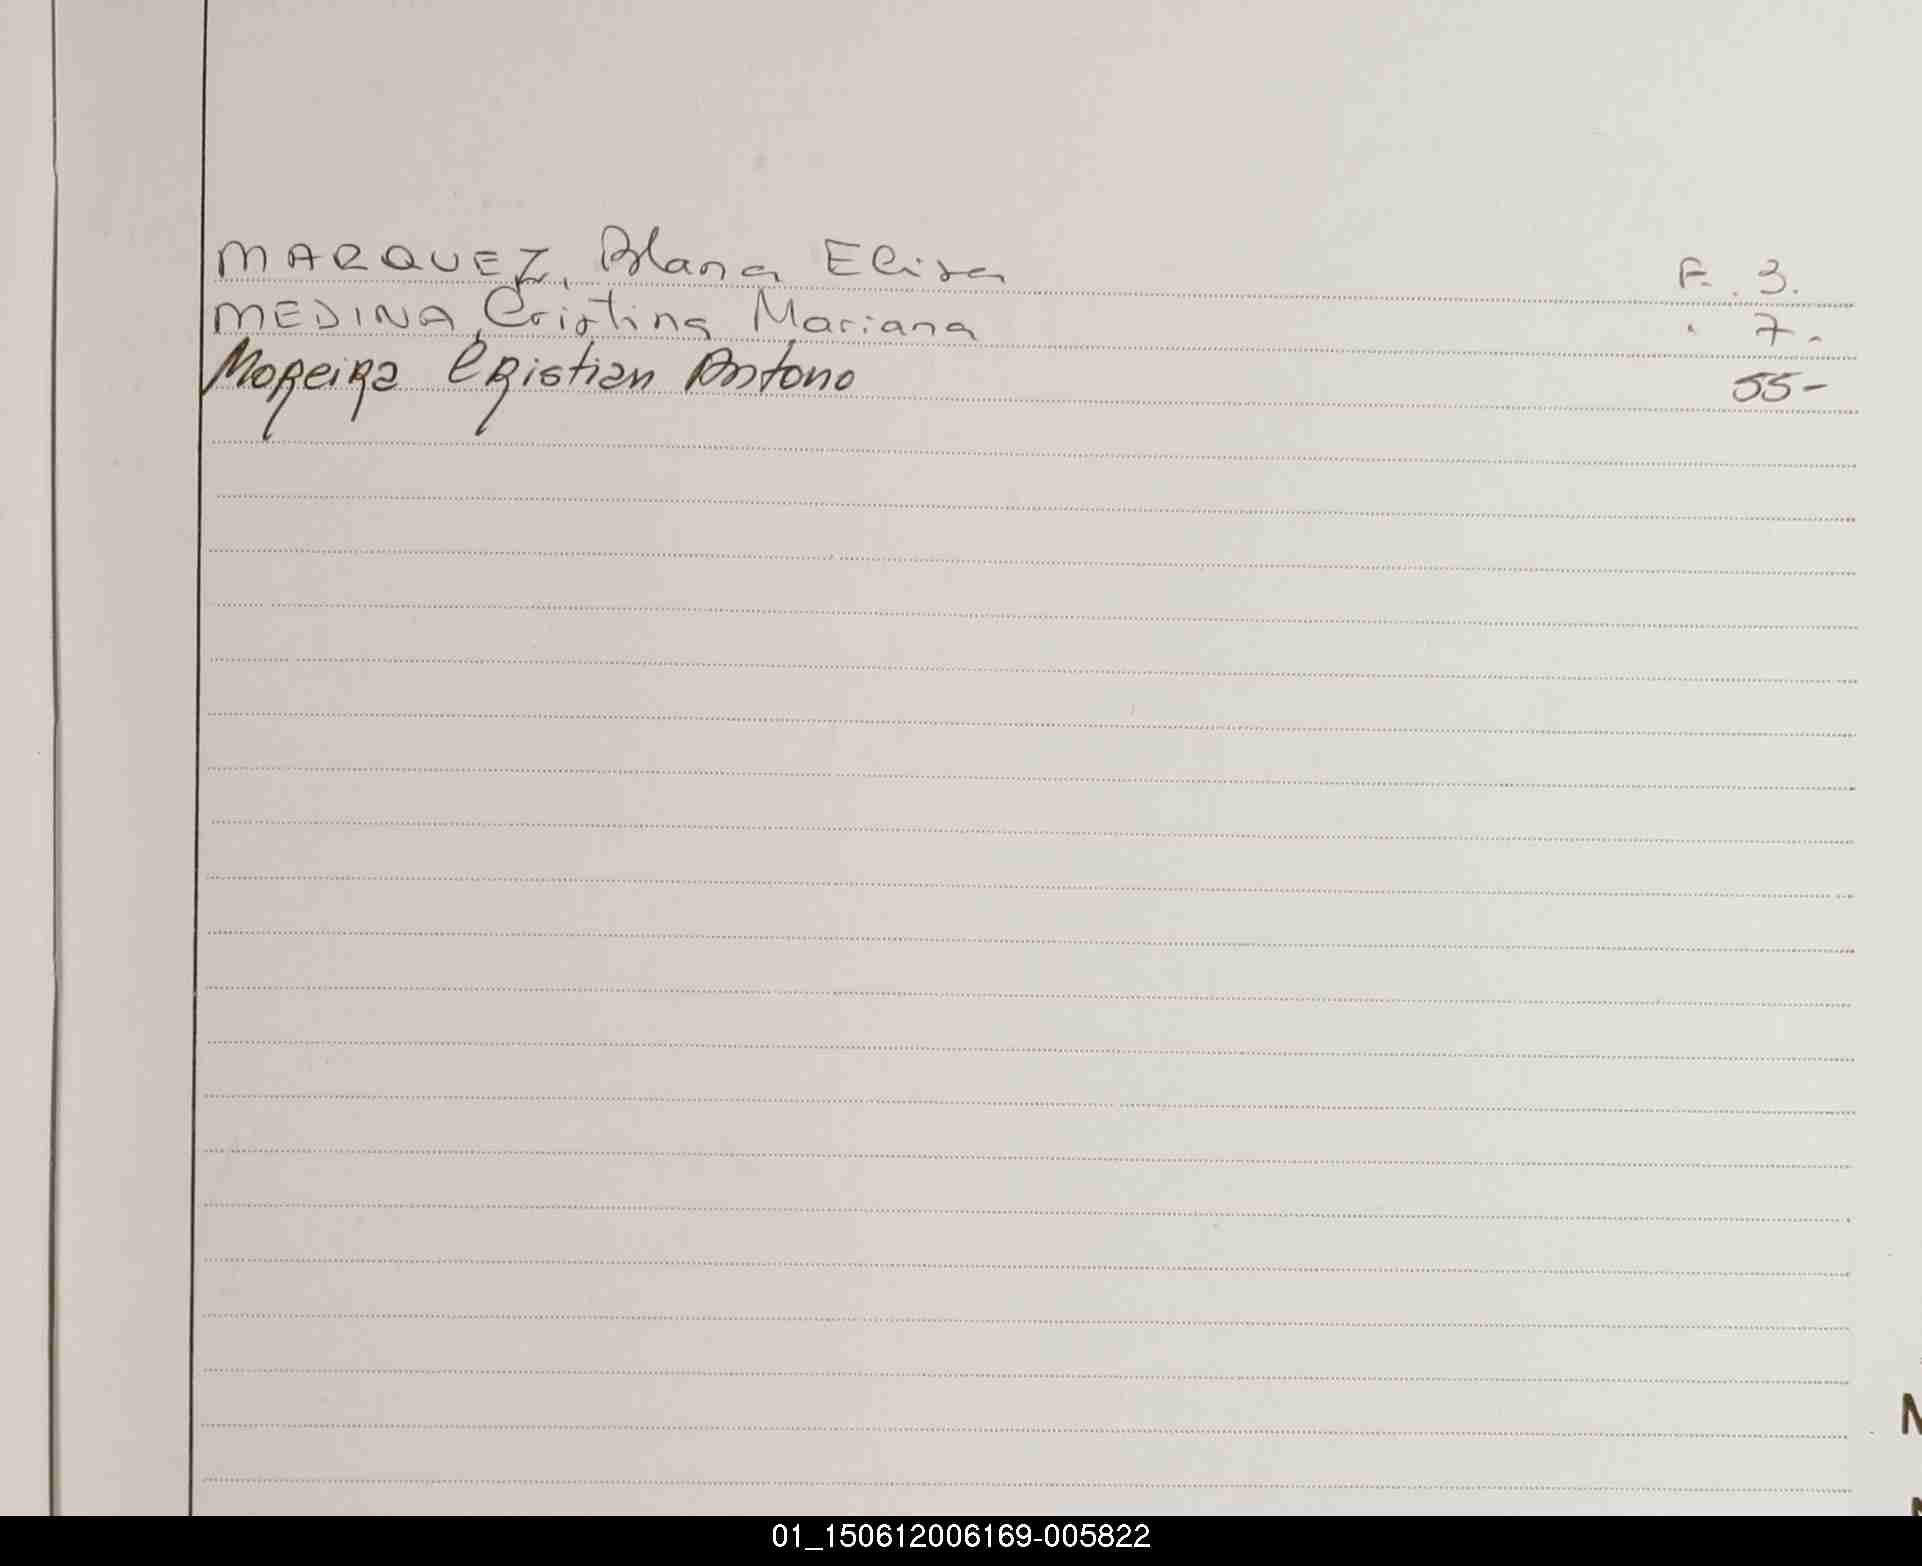 MARQUEZ, Blana Elisa F. 3.
MEDINA, Cristina Mariana . 7.
Moreira Cristian Antono 55-
N
01_150612006169-005822